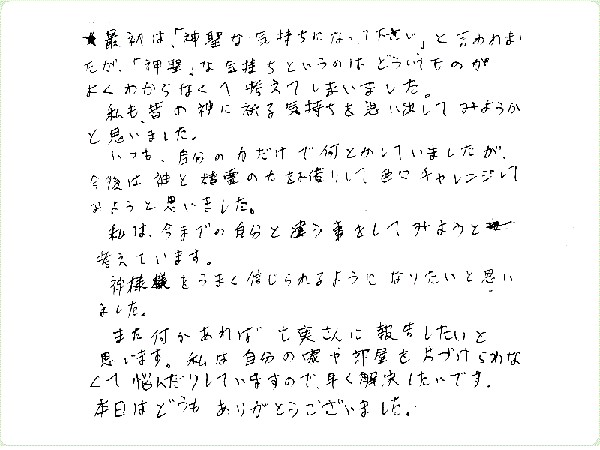 最初は、「神聖な気持ちになって下さい」と言われまし
たが、「神聖」な気持ちというのはどういうものか
よくわからなくて考えてしまいました。
私も、昔の神に祈る気持ちを思い出してみようか
と思いました。
いつも、自分の力だけで何とかしていましたが、
今後は神と精霊の力を借りして チャレンジして
みようと思いました。
私は、今までの自分と違う事をしてみようと
考えています。
神様をうまく信じられるようになりたいと思い
ました。
また何かあれば さんに報告したいと
思います。私は自分の家や部屋を片づけられな
くて悩んだりしていますので、早く解決したいです。
本日はどうもありがとうございました。